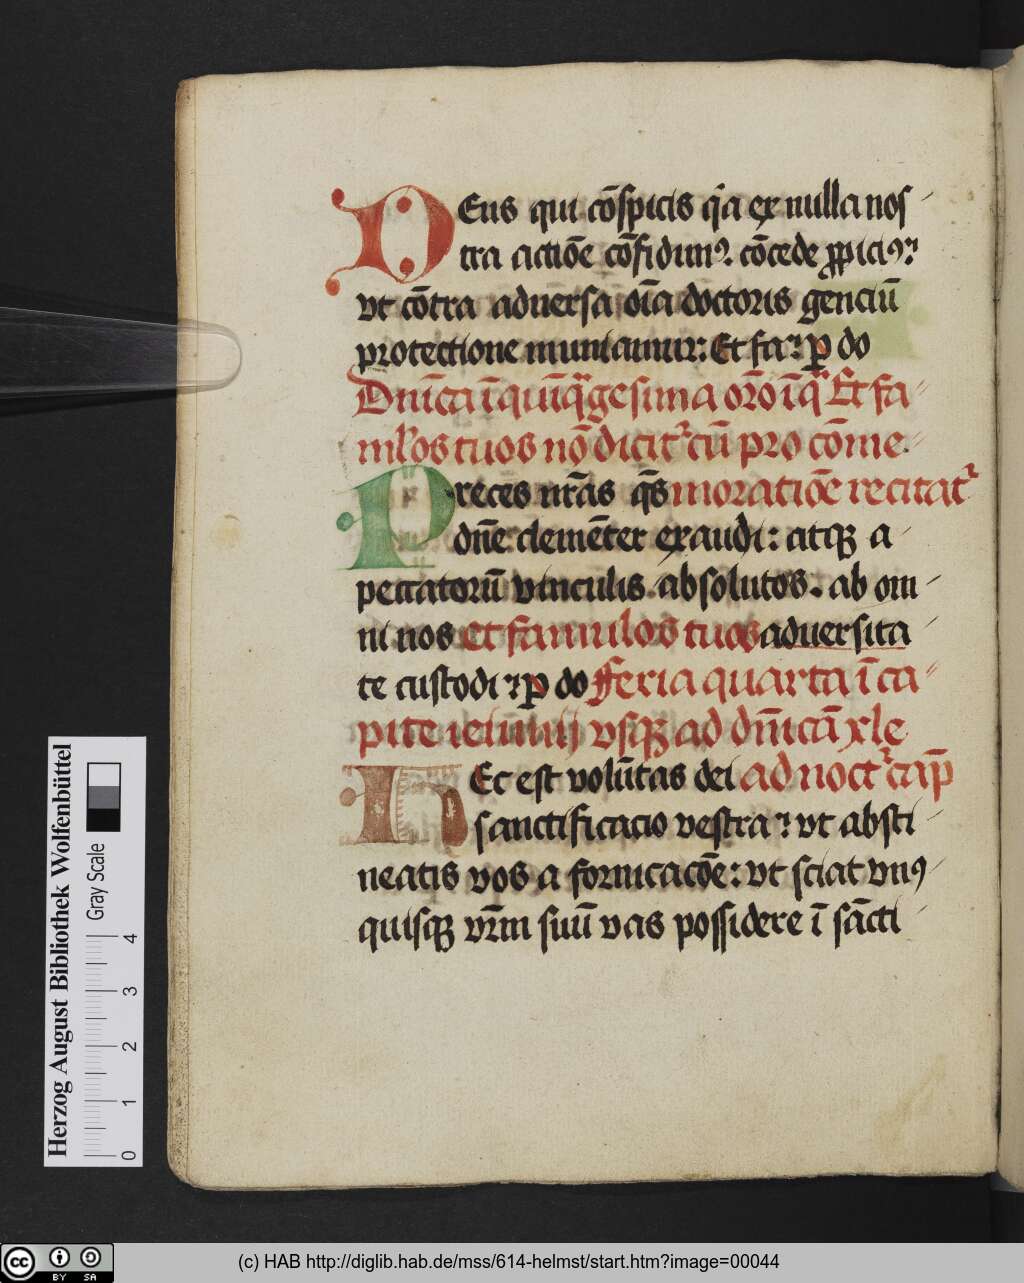 DEus qui cō̄spicis q̄a ex nulla nos
tra actiōe cōfidimꝰ. cōcede ꝓpiciꝰ:
vt cōtra aduersa oīa doctoris genciū
protectione muniamur: Et fa: ꝑ do
Dnīca ī quīq̄gesima orō ī q̄ Et fa
mlos tuos nō dicitᷣ cū pro cōme
Preces nr̄as q̄s in oratiōe recitatᷣ
dn̄e clemēter exaudi: atqꝫ a
peccatorū vinculis absolutos. ab om
ni nos et famulos tuos aduersita
te custodi: ꝑ do Feria quarta ī ca
pite ieiunij vsqꝫ ad dn̄icā xle
HEc est volūtas dei ad noctᷣ cap̄
sanctificacio vestra: vt absti
neatis vos a fornicacōe: vt sciat vnꝰ
quisqꝫ vr̄m suū vas possidere ī sācti
Herzog August Bibliothek Wolfenbüttel
Gray Scale
0 1 2 3 4
cc BY SA
(c) HAB http://diglib.hab.de/mss/614-helmst/start.htm?image=00044